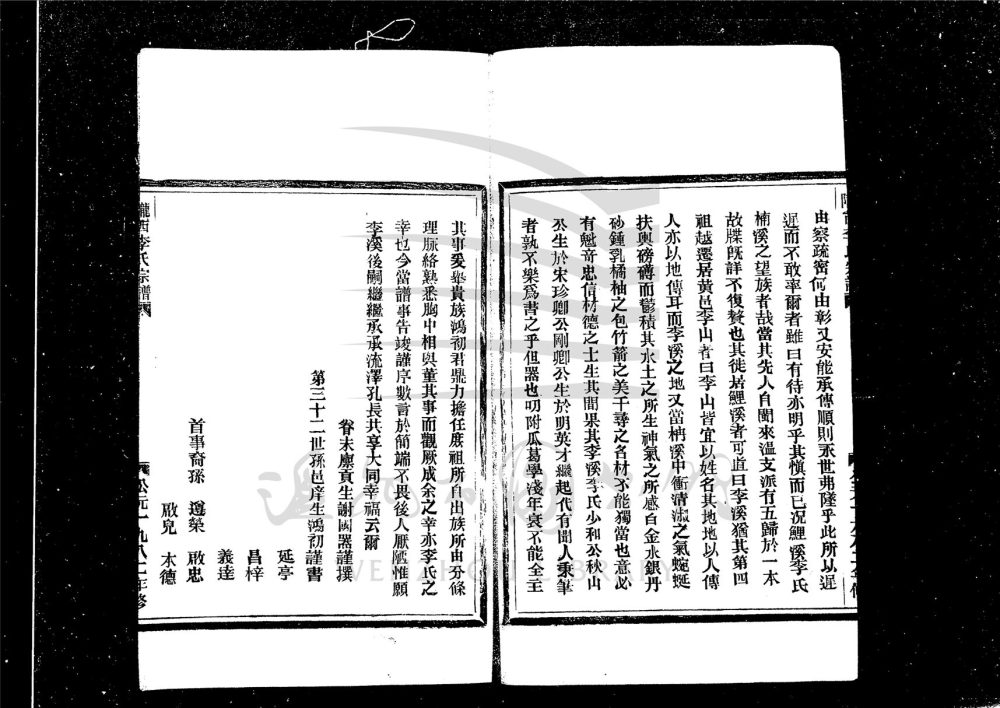 由察疏密何由彰又安能承傳順則永世弗墜乎此所以遲
遲而不敢率爾者雖曰有待亦明乎其慎而已況鯉溪李氏
楠溪之望族者哉當其先人自閩來溫支派有五歸於一本
故牒旣詳不復贅也其徙居鯉溪者可道曰李溪猶其第四
祖越遷居黄邑李山者曰李山皆宜以姓名其地地以人傳
人亦以地傳耳而李溪之地又當枬溪中衝清淑之氣蜿蜒
扶輿磅礡而鬱積其水土之所生神氣之所感白金水銀丹
砂鍾乳橘柚之包竹箭之美千尋之名材不能獨當也意必
有魁竒忠信材德之士生其間果其李溪李氏少和公秋山
公生於宋珍卿公剛卿公生於明英才繼起代有聞人秉筆
者孰不樂爲書之乎但器也叨附瓜葛學淺年衰不能全主
其事爰舉貴族鴻初君鼎力擔任庶祖所自出族所由分條
理脈絡熟悉胸中相與董其事而觀厥成余之幸亦李氏之
幸也今當譜事告竣謹序數言於簡端不畏後人厭陋惟願
李溪後嗣繼繼承承流澤孔長共享大同幸福云爾
眷末廪貢生謝國器謹撰
第三十二世孫邑庠生鴻初謹書
延亭
昌梓
義逵
首事裔孫 遵榮 啟忠
啟兒 木德
隴西李氏宗譜
公元一九八二年修